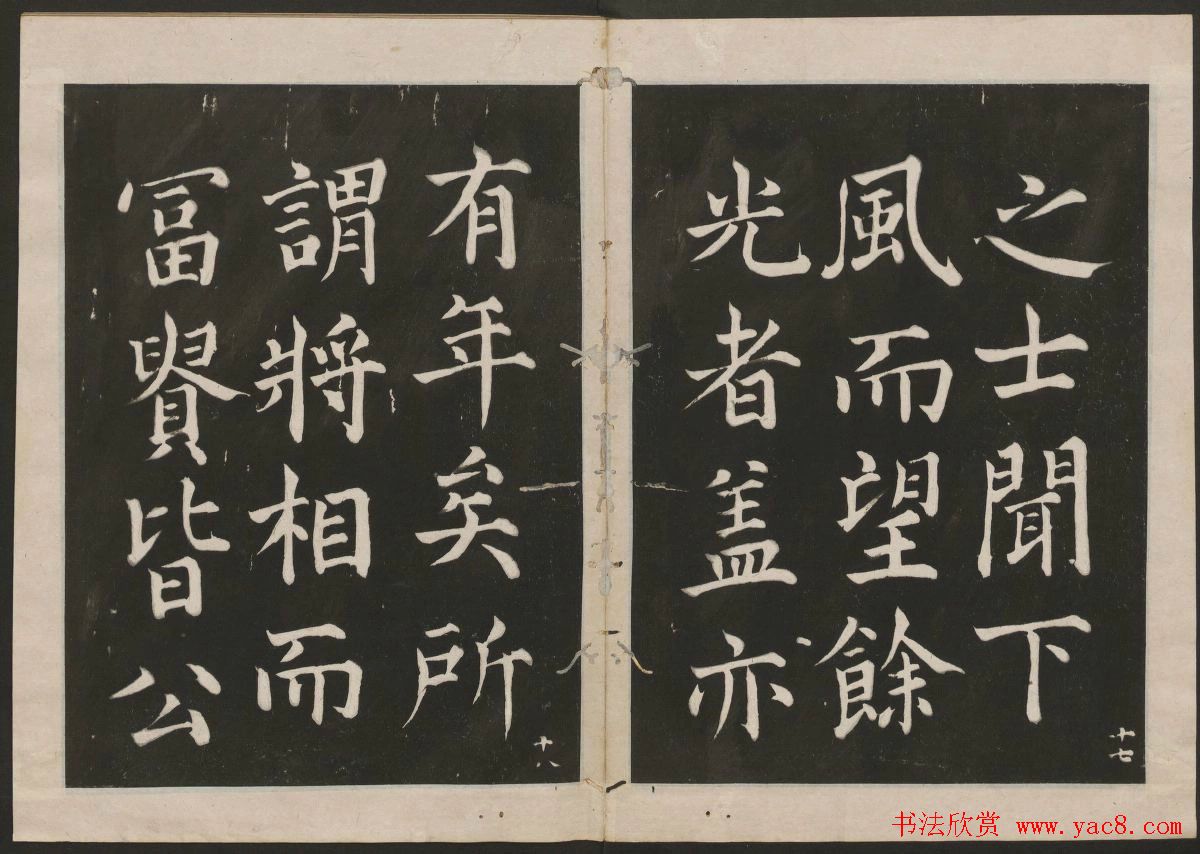 之士聞下
風而望餘
光者盖亦
十七
有年矣所
謂將相而
冨貴皆公
十八
书法欣赏 www.yac8.com